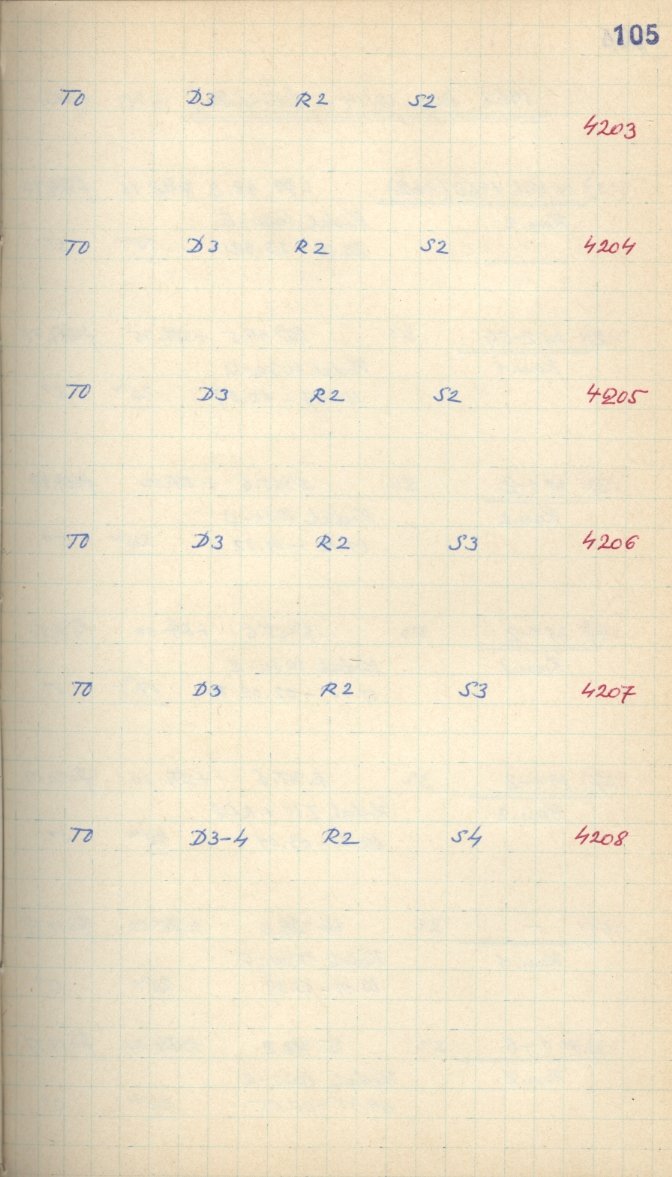 105
T0 D3 R2 S2
4203
T0 D3 R2 S2 4204
T0 D3 R2 S2 4205
T0 D3 R2 S3 4206
T0 D3 R2 S3 4207
T0 D3-4 R2 S4 4208